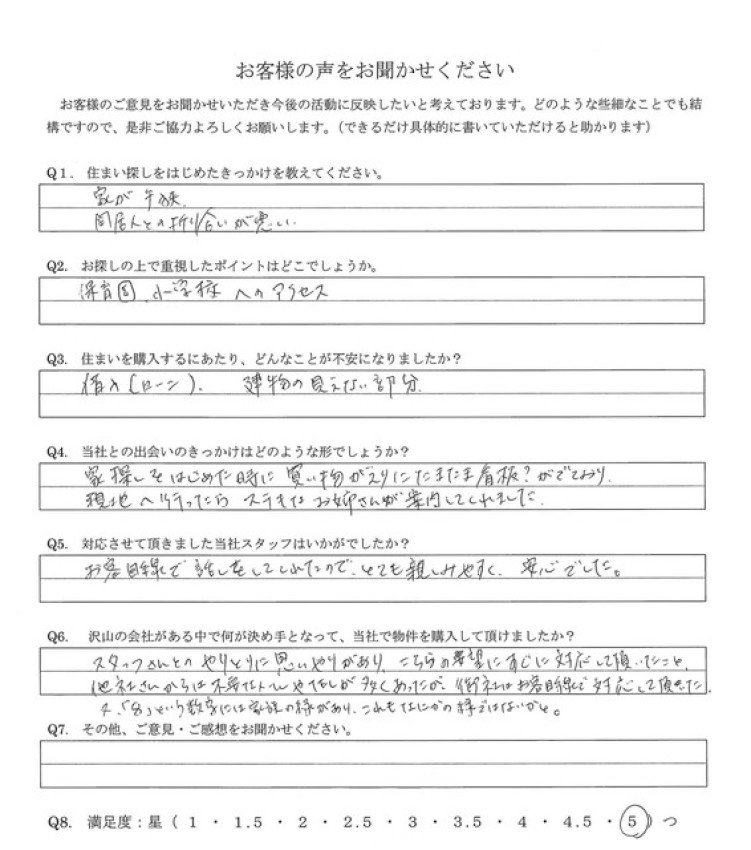 お客様の声をお聞かせください
お客様のご意見をお聞かせいただき今後の活動に反映したいと考えております。どのような些細なことでも結
構ですので、是非ご協力よろしくお願いします。(できるだけ具体的に書いていただけると助かります)
Q1. 住まい探しをはじめたきっかけを教えてください。
家が手狭.
同居人との折り合いが悪い.
Q2. お探しの上で重視したポイントはどこでしょうか。
保育園、小学校へのアクセス
Q3. 住まいを購入するにあたり、どんなことが不安になりましたか?
借入(ローン). 建物の見えない部分.
Q4. 当社との出会いのきっかけはどのような形でしょうか?
家探しをはじめた時に買い物がえりにたまたま看板?がでており.
現地へ行ったらステキなお姉さんが案内してくれました.
Q5. 対応させて頂きました当社スタッフはいかがでしたか?
お客目線で話しをしてくれたので、とても親しみやすく、安心でした。
Q6. 沢山の会社がある中で何が決め手となって、当社で物件を購入して頂けましたか?
スタッフさんとのやりとりに思いやりがあり、こちらの希望にすぐに対応して頂いたこと。
他社さんからは が多くあったが、御社はお客目線で対応して頂きた
「8」という数字には家族の縁があり、これもなにかの縁ではないかと。
Q7. その他、ご意見・ご感想をお聞かせください。
Q8. 満足度:星( 1 ・ 1.5 ・ 2 ・ 2.5 ・ 3 ・ 3.5 ・ 4 ・ 4.5 ・ 5 )つ